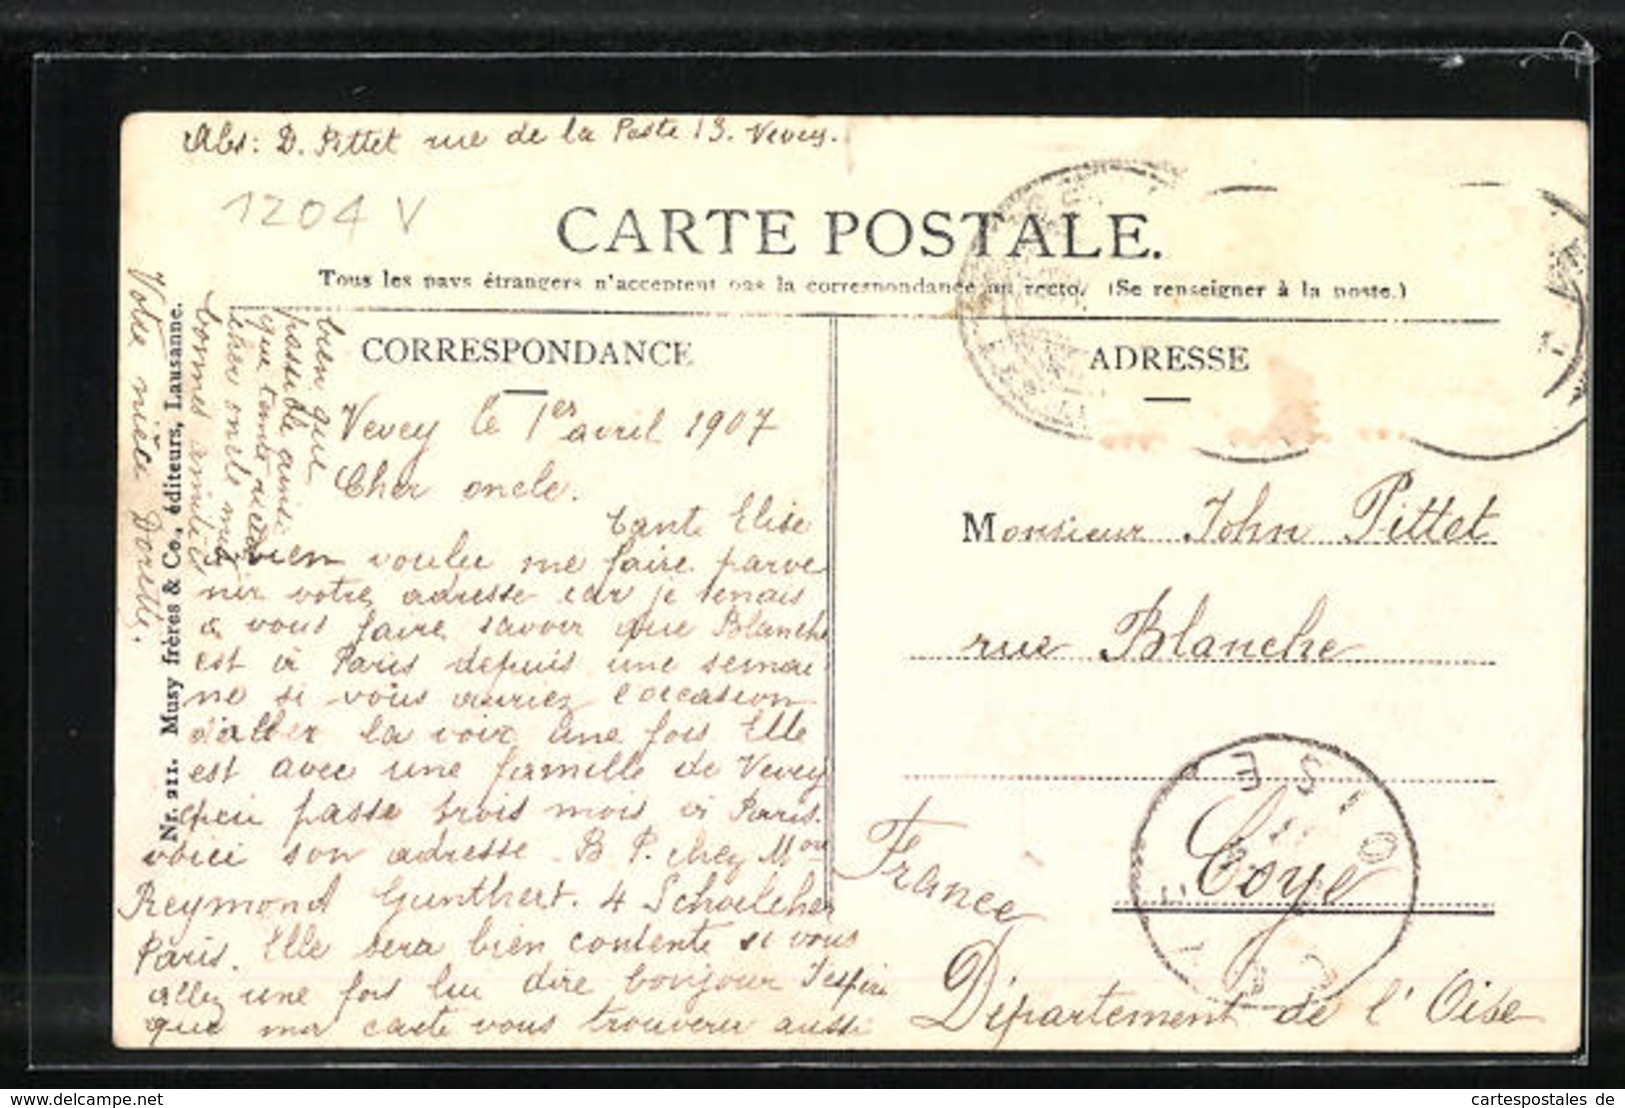 Abs: D. Pittet rue de la Poste 13. Vevey.
1204 V
CARTE POSTALE.
Tous les pays étrangers n'acceptent pas la correspondance au recto. (Se renseigner à la poste.)
CORRESPONDANCE
ADRESSE
Vevey le 1er avril 1907
Cher oncle.
tante Elise
a bien voulu me faire parve
nir votre adresse car je tenais
à vous faire savoir que Blanche
est à Paris depuis une semai
ne si vous auriez l'occasion
d'aller la voir une fois Elle
est avec une famille de Vevey
qui passe trois mois à Paris.
voici son adresse B P. chez Mon
Reymond Gunthert. 4 Schoelcher
Paris. Elle sera bien contente si vous
allez une fois lui dire bonjour J'espère
que ma carte vous trouvera aussi
bien que
possible ainsi
que tante
cher oncle mes
bonnes amitiés
Votre nièce Dorette.
Nr. 211. Musy frères & Co., éditeurs, Lausanne.
Monsieur John Pittet
rue Blanche
Coye
France
Département de l'Oise
OISE
www.delcampe.net
cartespostales de